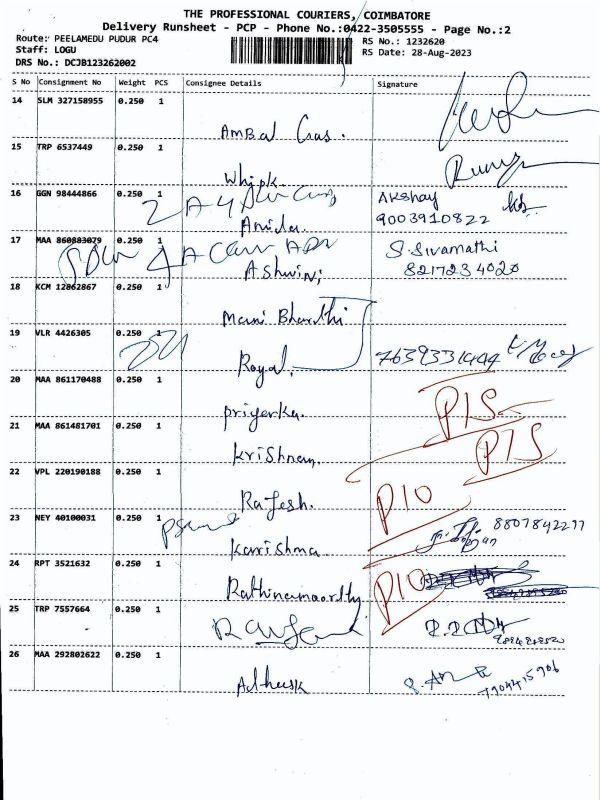 THE PROFESSIONAL COURIERS, COIMBATORE
Delivery Runsheet - PCP - Phone No.:0422-3505555 - Page No.:2
Route: PEELAMEDU PUDUR PC4
Staff: LOGU
DRS No.: DCJB123262002
RS No.: 1232620
RS Date: 28-Aug-2023
S No Consignment No Weight PCS Consignee Details Signature
14 SLM 327158955 0.250 1
Ambal Gas.
15 TRP 6537449 0.250 1
Whipk
16 GGN 98444866 0.250 1
Akshay
Anida 9003910822
17 MAA 860883079 0.250 1
S. Sivamathi
Ashwini 8217234020
18 KCM 12862867 0.250 1
Mani Bharathi
19 VLR 4426305 0.250 1
Royal. 7639331444
20 MAA 861170488 0.250 1
Priyerka. P1S
21 MAA 861481701 0.250 1
Krishnan. P1S
22 VPL 220190188 0.250 1
Rajesh. P10
23 NEY 40100031 0.250 1
8807842277
Karishma
24 RPT 3521632 0.250 1
Rathinamoorthy P10
25 TRP 7557664 0.250 1
26 MAA 292802622 0.250 1
Adheesk 7904415906